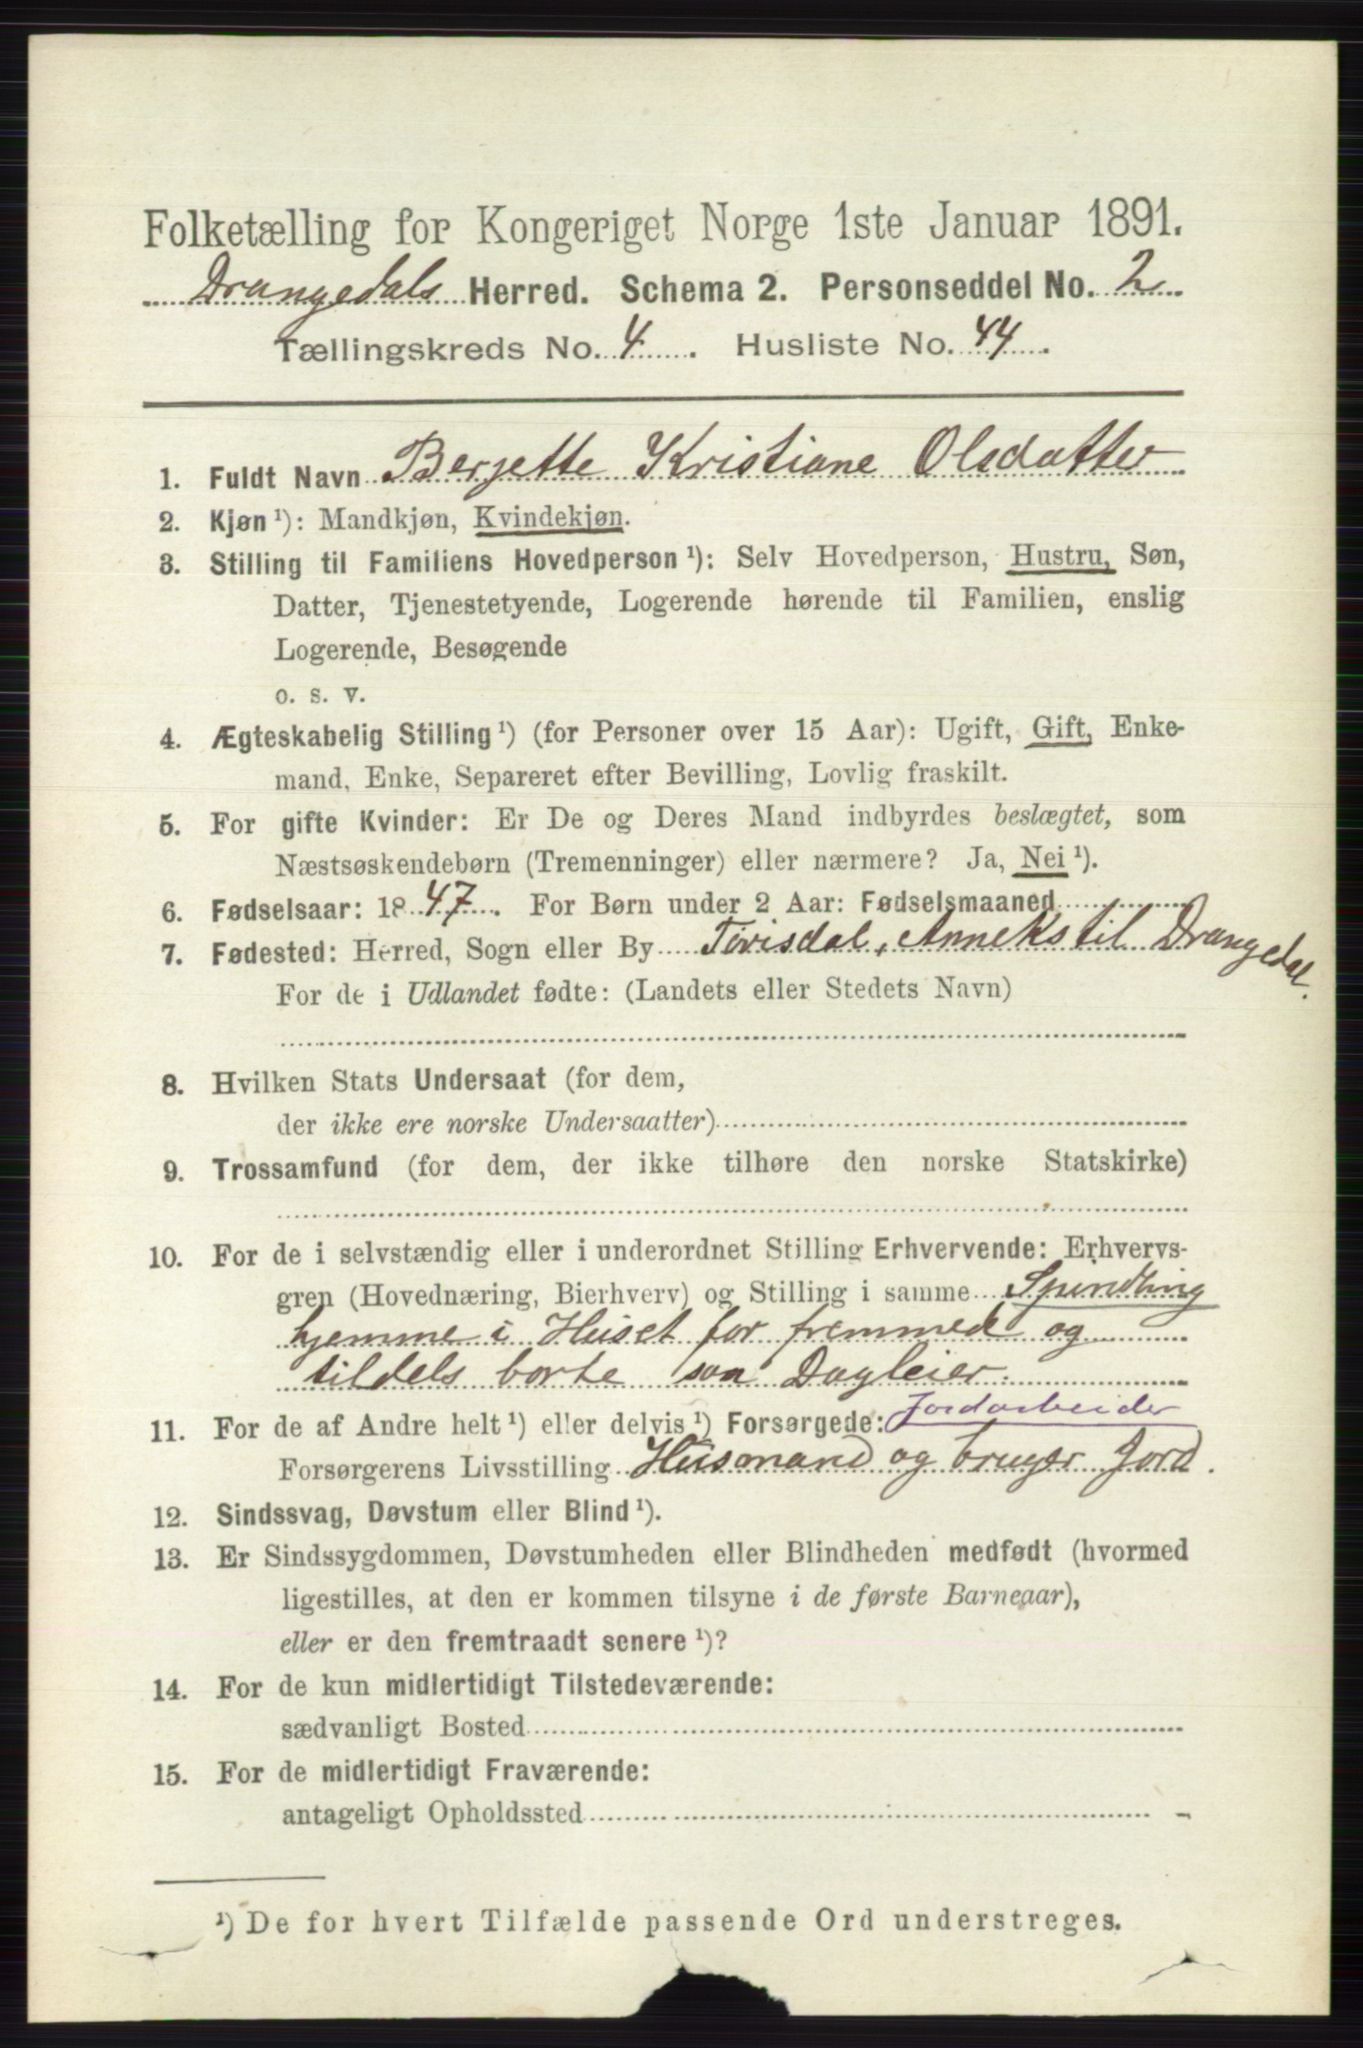 Folketælling for Kongeriget Norge 1ste Januar 1891.
Drangedals Herred. Schema 2. Personseddel No. 2
Tællingskreds No. 4. Husliste No. 44.
1. Fuldt Navn Berjette Kristiane Olsdatter
2. Kjøn ¹): Mandkjøn, Kvindekjøn.
3. Stilling til Familiens Hovedperson ¹): Selv Hovedperson, Hustru, Søn,
Datter, Tjenestetyende, Logerende hørende til Familien, enslig
Logerende, Besøgende
o. s. v.
4. Ægteskabelig Stilling ¹) (for Personer over 15 Aar): Ugift, Gift, Enke-
mand, Enke, Separeret efter Bevilling, Lovlig fraskilt.
5. For gifte Kvinder: Er De og Deres Mand indbyrdes beslægtet, som
Næstsøskendebørn (Tremenninger) eller nærmere? Ja, Nei ¹).
6. Fødselsaar: 1847. For Børn under 2 Aar: Fødselsmaaned
7. Fødested: Herred, Sogn eller By Tørisdal, Anneks til Drangedal.
For de i Udlandet fødte: (Landets eller Stedets Navn)
8. Hvilken Stats Undersaat (for dem,
der ikke ere norske Undersaatter)
9. Trossamfund (for dem, der ikke tilhøre den norske Statskirke)
10. For de i selvstændig eller i underordnet Stilling Erhvervende: Erhvervs-
gren (Hovednæring, Bierhverv) og Stilling i samme Spinding
hjemme i Huset for fremmed og
tildels borte som Dagleier.
11. For de af Andre helt ¹) eller delvis ¹) Forsørgede: Jordarbeider
Forsørgerens Livsstilling Husmand og bruger Jord.
12. Sindssvag, Døvstum eller Blind ¹).
13. Er Sindssygdommen, Døvstumheden eller Blindheden medfødt (hvormed
ligestilles, at den er kommen tilsyne i de første Barneaar),
eller er den fremtraadt senere ¹)?
14. For de kun midlertidigt Tilstedeværende:
sædvanligt Bosted
15. For de midlertidigt Fraværende:
antageligt Opholdssted
¹) De for hvert Tilfælde passende Ord understreges.